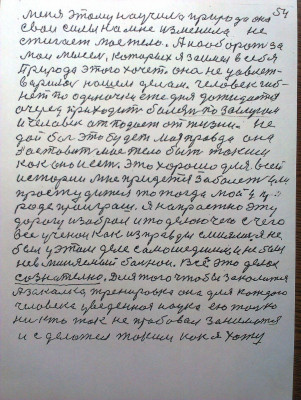 54
меня этому научила природа она
свои силы на мне изменила не
стигает мое тело. А наоборот за
мои мысли, которых я занел в себя
Природа этого хочет она не удовлет-
вариласъ нашем делам. Человек гиб-
нет по одиночки сте дня дожидается
очередь приходит болезн по заслугам
и человек от подает от жизни. Не
дай бог это будет моя правда она
заставит мое тело быт таким
как оно и ест. Это хорошо для всей
истории мне придется заболет или
простудится то тогда мой в при-
роде проиграш. Я напрастно эту
дорогу избрал и то делаю чего
все ученои как из правды смиялися не
был у этом деле самошедшим, и не был
невминяемый больной. Всё это делал
сознателно. Для того чтобы заколятся
А закалка тренировка она для каждого
человека уведенная наука ею толко
никто так не пробовал заниматся
и сделатся таким как я хожу